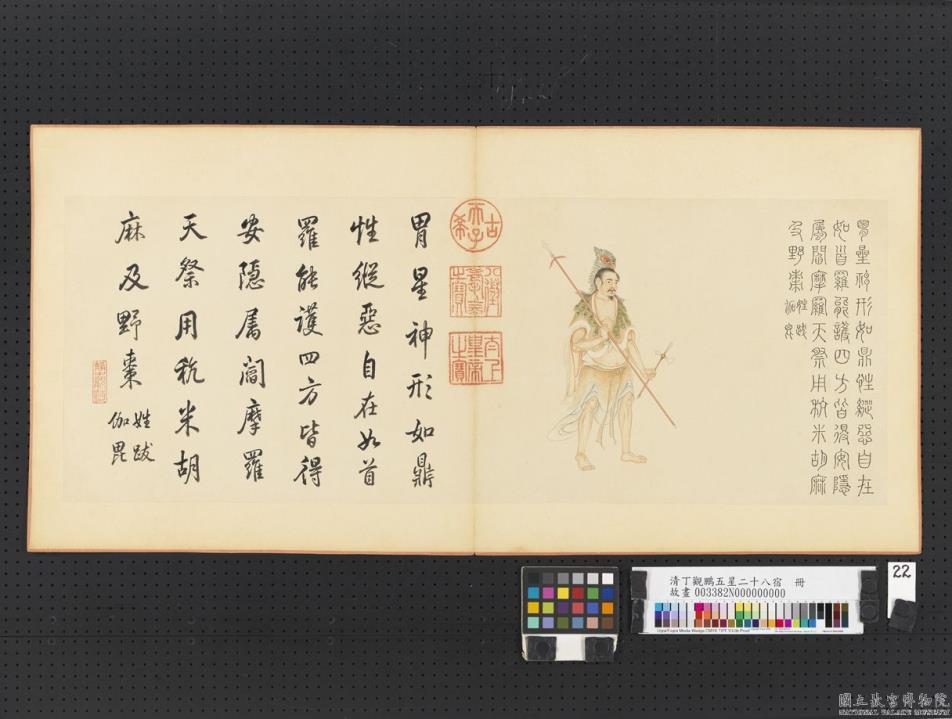 胃星神形如鼎性縱惡自在
如首羅能護四方皆得安隱
屬閻摩羅天祭用秔米胡麻
及野棗姓跋
伽毘
古希天子
八徵耄念之寶
太上皇帝之寶
胃星神形如鼎
性縱惡自在如首
羅能護四方皆得
安隱屬閻摩羅
天祭用秔米胡
麻及野棗姓跋
伽毘
清丁觀鵬五星二十八宿 冊
故畫 003382N000000000
22
國立故宮博物院
NATIONAL PALACE MUSEUM